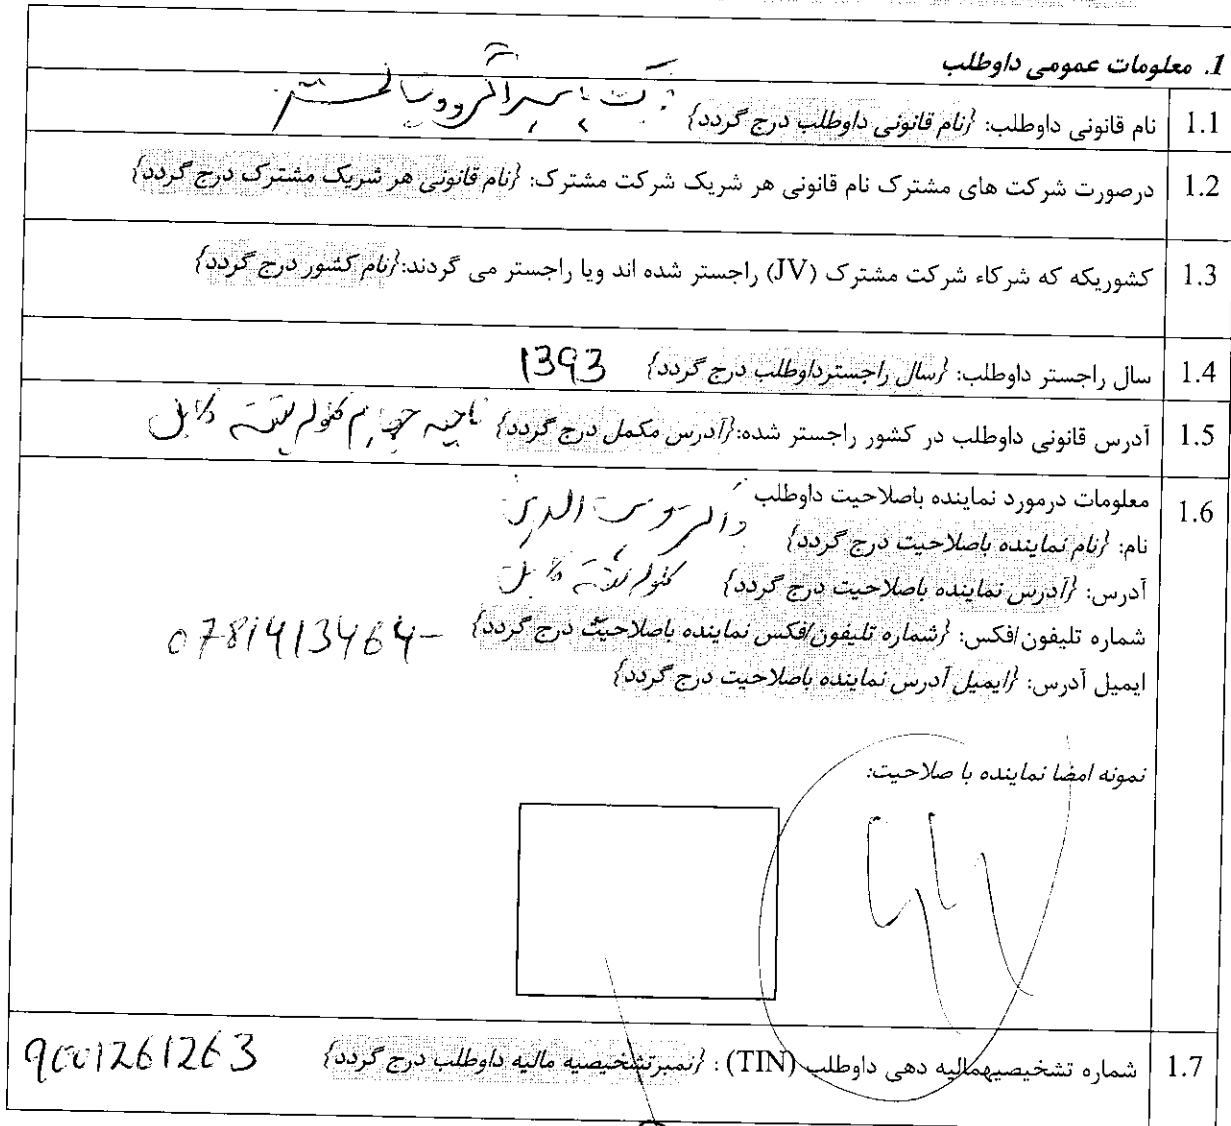 1. معلومات عمومی داوطلب
1.1 نام قانونی داوطلب: {نام قانونی داوطلب درج گردد}
1.2 درصورت شرکت های مشترک نام قانونی هر شریک شرکت مشترک: {نام قانونی هر شریک مشترک درج گردد}
1.3 کشوریکه که شرکاء شرکت مشترک (JV) راجستر شده اند ویا راجستر می گردند:{نام کشور درج گردد}
1.4 سال راجستر داوطلب: {سال راجسترداوطلب درج گردد} 1393
1.5 آدرس قانونی داوطلب در کشور راجستر شده:{آدرس مکمل درج گردد} ناحیه چهارم کلوله پشته کابل
1.6 معلومات درمورد نماینده باصلاحیت داوطلب
نام: {نام نماینده باصلاحیت درج گردد}
آدرس: {آدرس نماینده باصلاحیت درج گردد} کلوله پشته کابل
شماره تلیفون/فکس: {شماره تلیفون/فکس نماینده باصلاحیت درج گردد} - 0781413464
ایمیل آدرس: {ایمیل آدرس نماینده باصلاحیت درج گردد}
نمونه امضا نماینده با صلاحیت:
1.7 شماره تشخیصیهمالیه دهی داوطلب (TIN) : {نمبرتشخیصیه مالیه داوطلب درج گردد} 9001261263